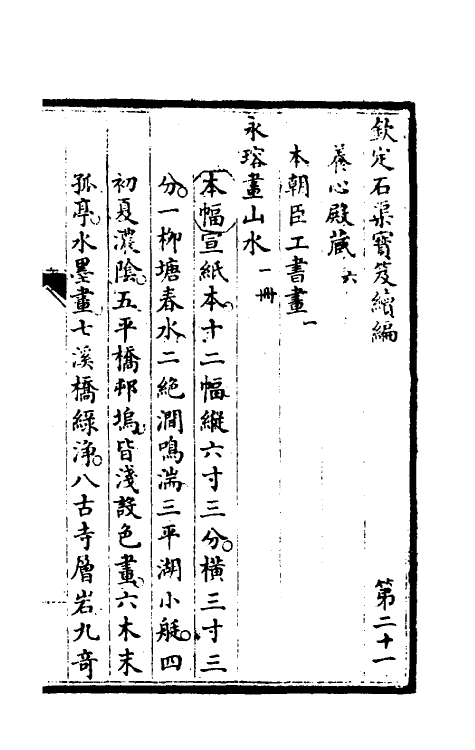 欽定石渠寶笈續編　第二十一
養心殿藏六
本朝臣工書畫一
永瑢畫山水一冊
本幅宣紙本十二幅縱六寸三分橫三寸三
分一柳塘春水二絕澗鳴湍三平湖小艇四
初夏濃陰五平橋邨塢皆淺設色畫六木末
孤亭水墨畫七溪橋綠淨八古寺層岩九奇